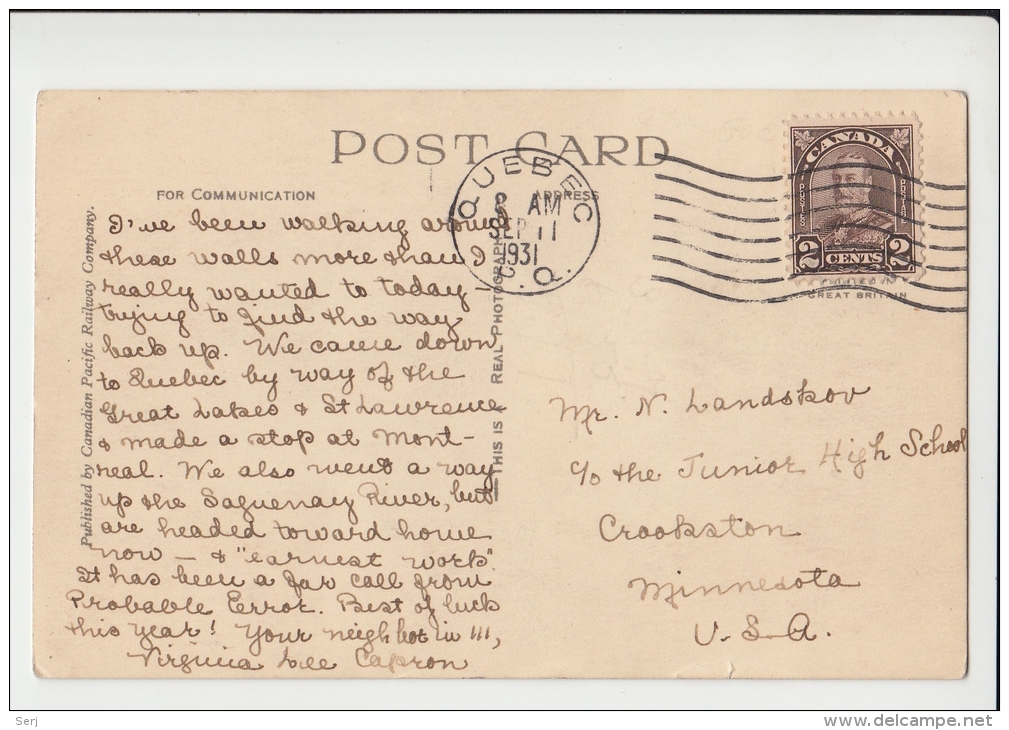 POST CARD
FOR COMMUNICATION
ADDRESS
Published by Canadian Pacific Railway Company.
THIS IS REAL PHOTOGRAPH
QUEBEC
8 AM
SEP 11
1931
P.Q.
CANADA
POSTES
POSTAGE
2 CENTS 2
PRINTED IN
GREAT BRITAIN
I've been walking around
these walls more than I
really wanted to today –
trying to find the way
back up. We came down
to Quebec by way of the
Great Lakes & St Lawrence
& made a stop at Mont-
real. We also went a way
up the Saguenay River, but
are headed toward home
now – & "earnest work".
It has been a far call from
Probable Error. Best of luck
this year! Your neighbor in 111,
Virginia Lee Capron
Mr. N. Landskov
c/o the Junior High School
Crookston
Minnesota
U.S.A.
Serj
www.delcampe.net